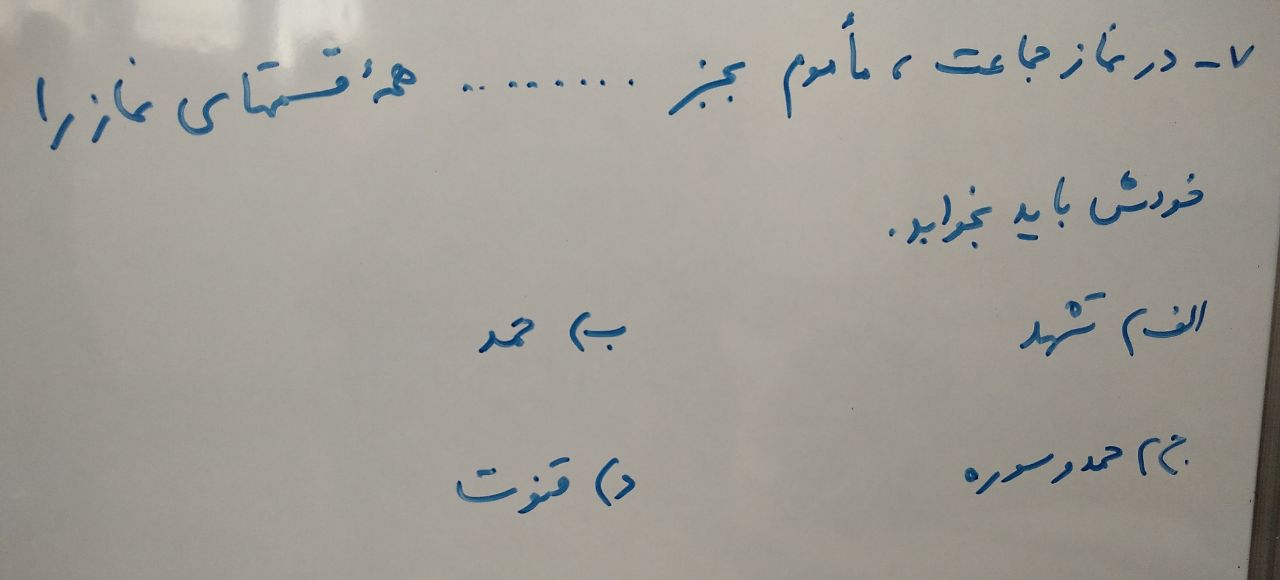 ۷- در نماز جماعت ، مأموم بجز ......... همهٔ قسمتهای نماز را
خودش باید بخواند.
الف) تشهد ب) حمد
ج) حمد و سوره د) قنوت